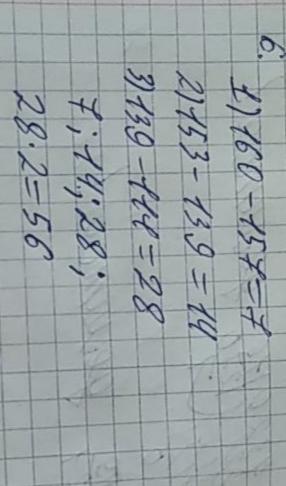 6.
1) 160 - 157 = 7
2) 153 - 139 = 14
3) 139 - 111 = 28
7; 14; 28;
28 · 2 = 56